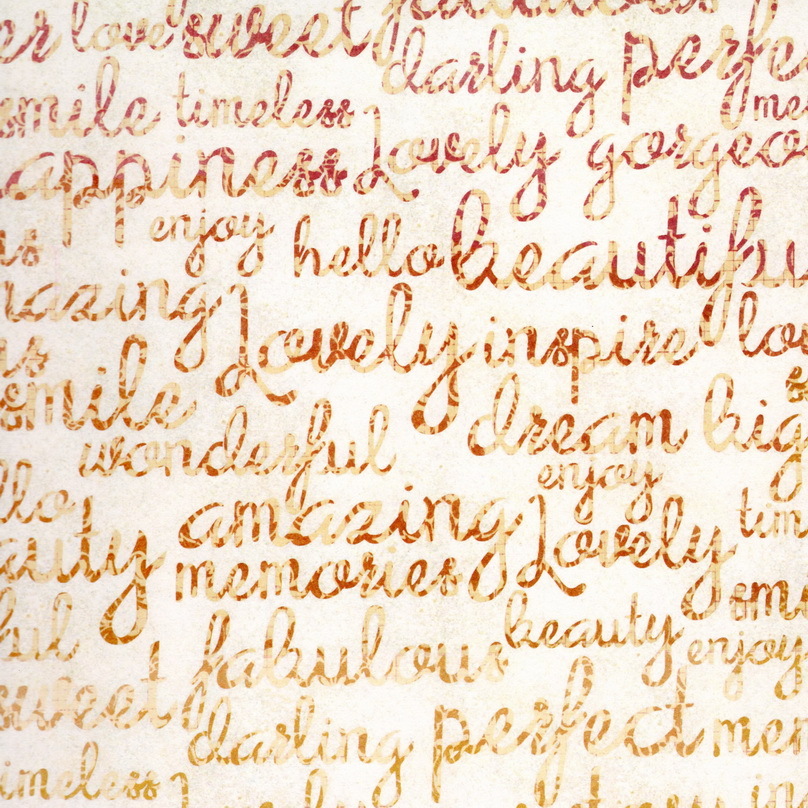 love sweet fabulous
darling perfe
smile timeless me
appiness Lovely gorgeo
enjoy hello beautifu
mazing Lovely inspire lo
smile dream big
wonderful enjoy
llo amazing Lovely tim
auty memories sm
fabulous beauty enjoy
sweet darling perfect mem
timeless